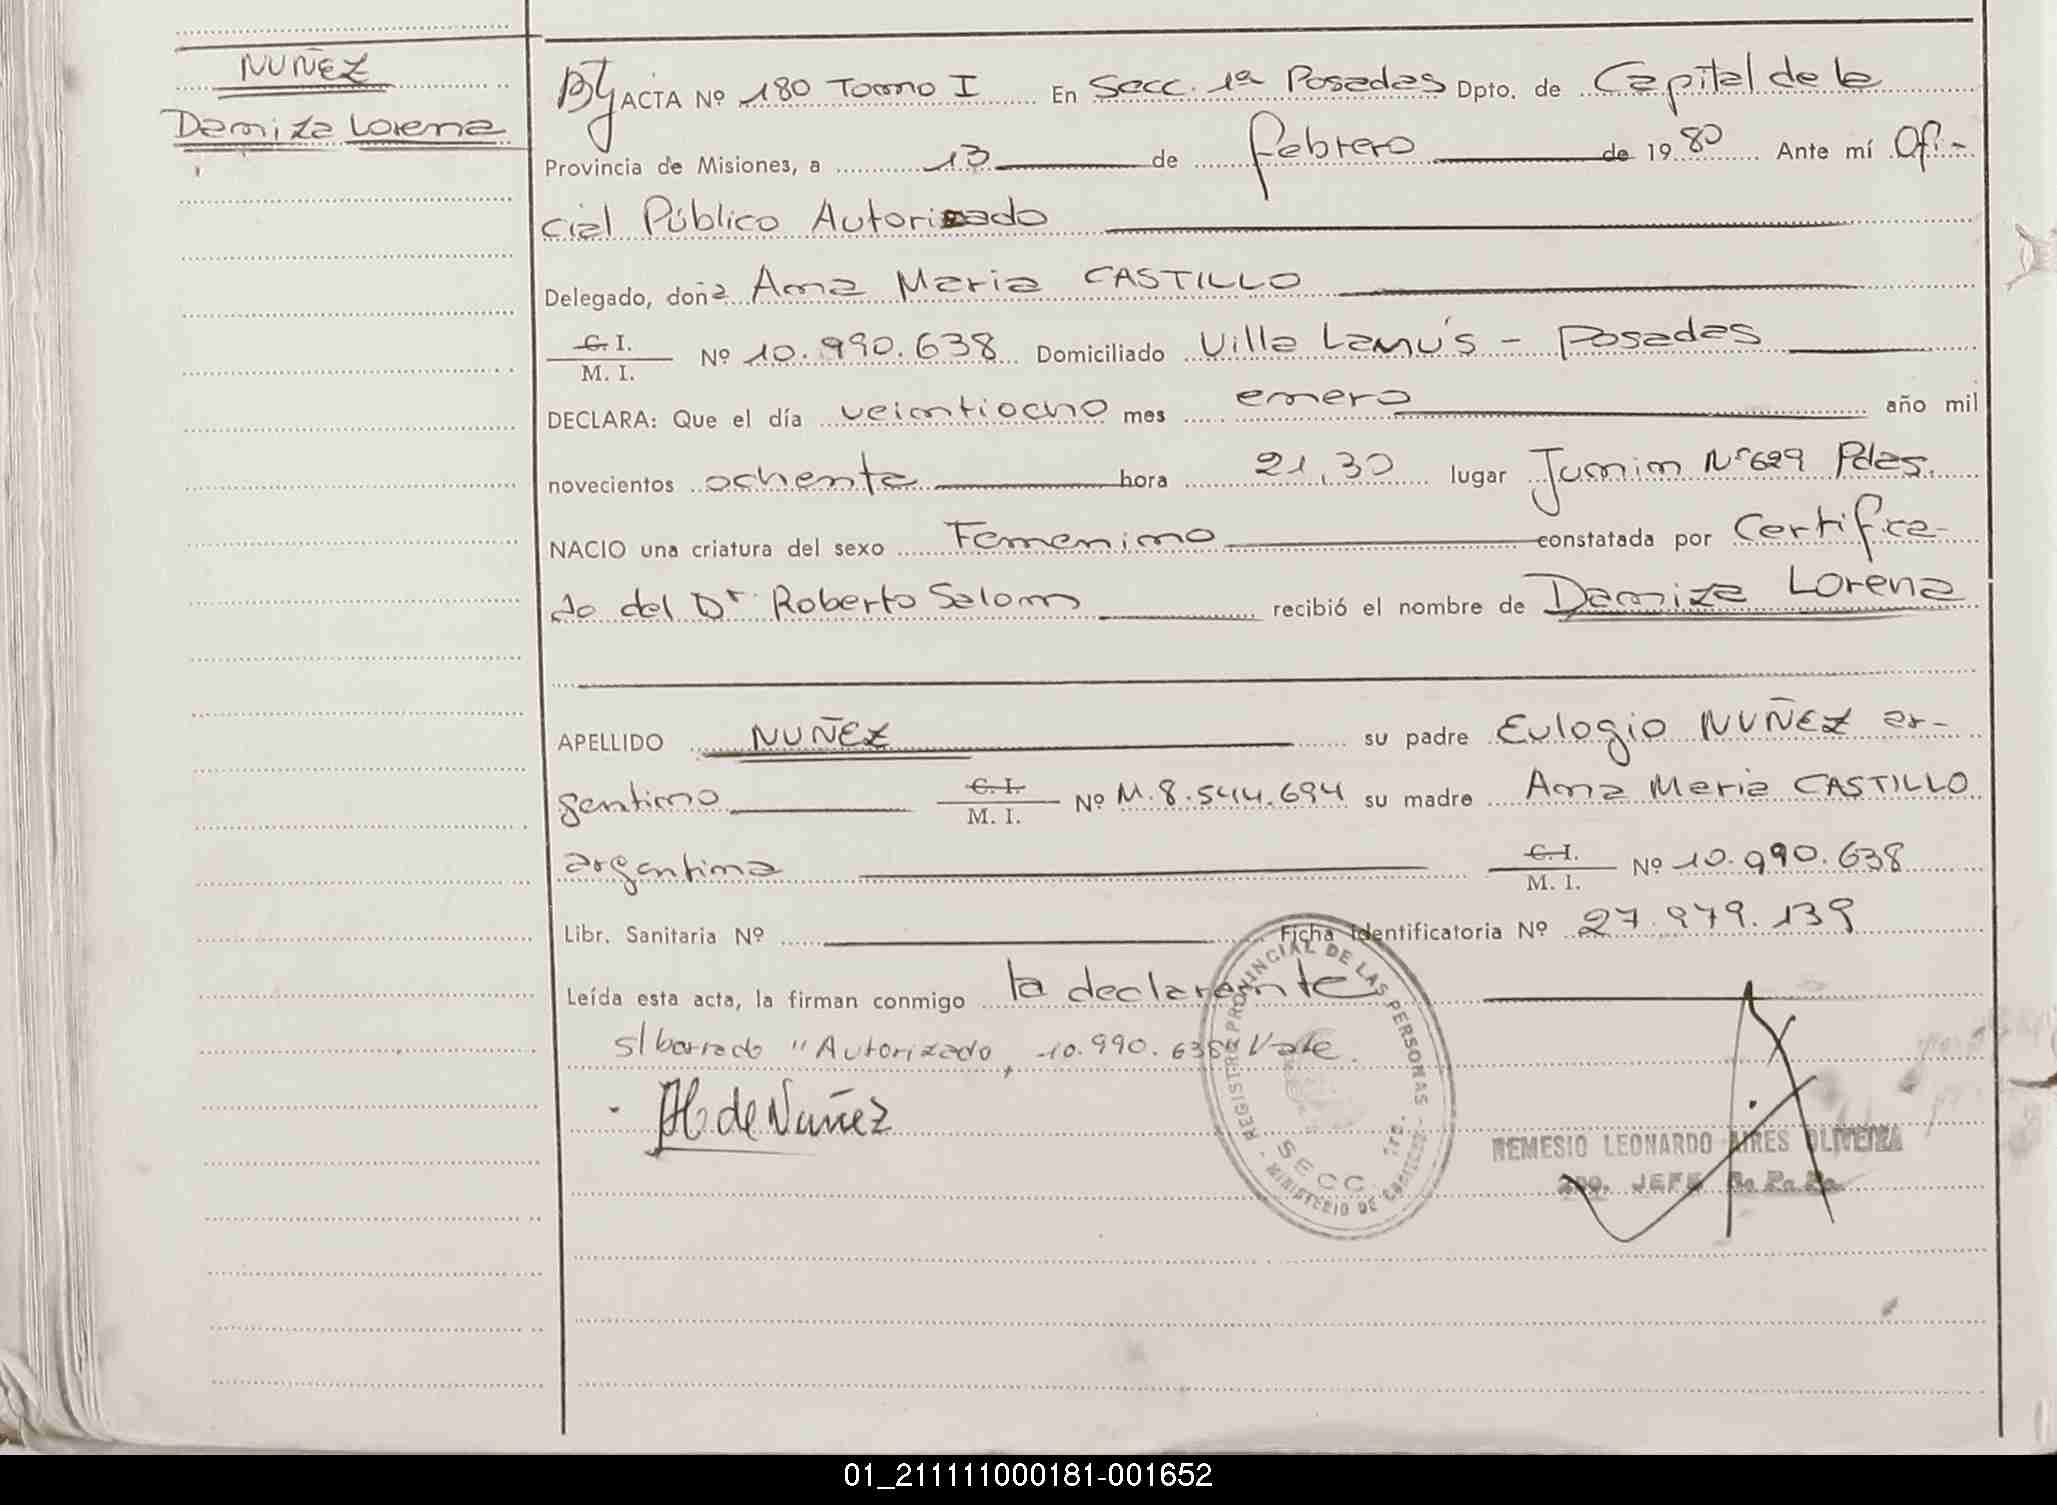 NUÑEZ
Damiza Lorena
ACTA Nº 180 Tomo I En Secc. 1ª Posadas Dpto. de Capital de la
Provincia de Misiones, a 13 de febrero de 1980 Ante mí Ofi-
cial Público Autorizado
Delegado, doña Ana Maria CASTILLO
C. I.
M. I. Nº 10.990.638 Domiciliado Villa Lanús - Posadas
DECLARA: Que el día veintiocho mes enero año mil
novecientos ochenta hora 21,30 lugar Junin Nº 629 Pdas.
NACIO una criatura del sexo Femenino constatada por Certifica-
do del Dr. Roberto Salom recibió el nombre de Damiza Lorena
APELLIDO NUÑEZ su padre Eulogio NUÑEZ ar-
gentino C. I. M. I. Nº M.8.544.694 su madre Ana Maria CASTILLO
argentina C. I. M. I. Nº 10.990.638
Libr. Sanitaria Nº Ficha Identificatoria Nº 27.979.139
Leída esta acta, la firman conmigo la declarante
s/borrado "Autorizado, 10.990.638" Vale.
de Nuñez
REGISTRO PROVINCIAL DE LAS PERSONAS
SECC. 1ro.
MINISTERIO DE
REMESIO LEONARDO AIRES OLIVEIRA
2do. JEFE R. P. P.
01_211111000181-001652